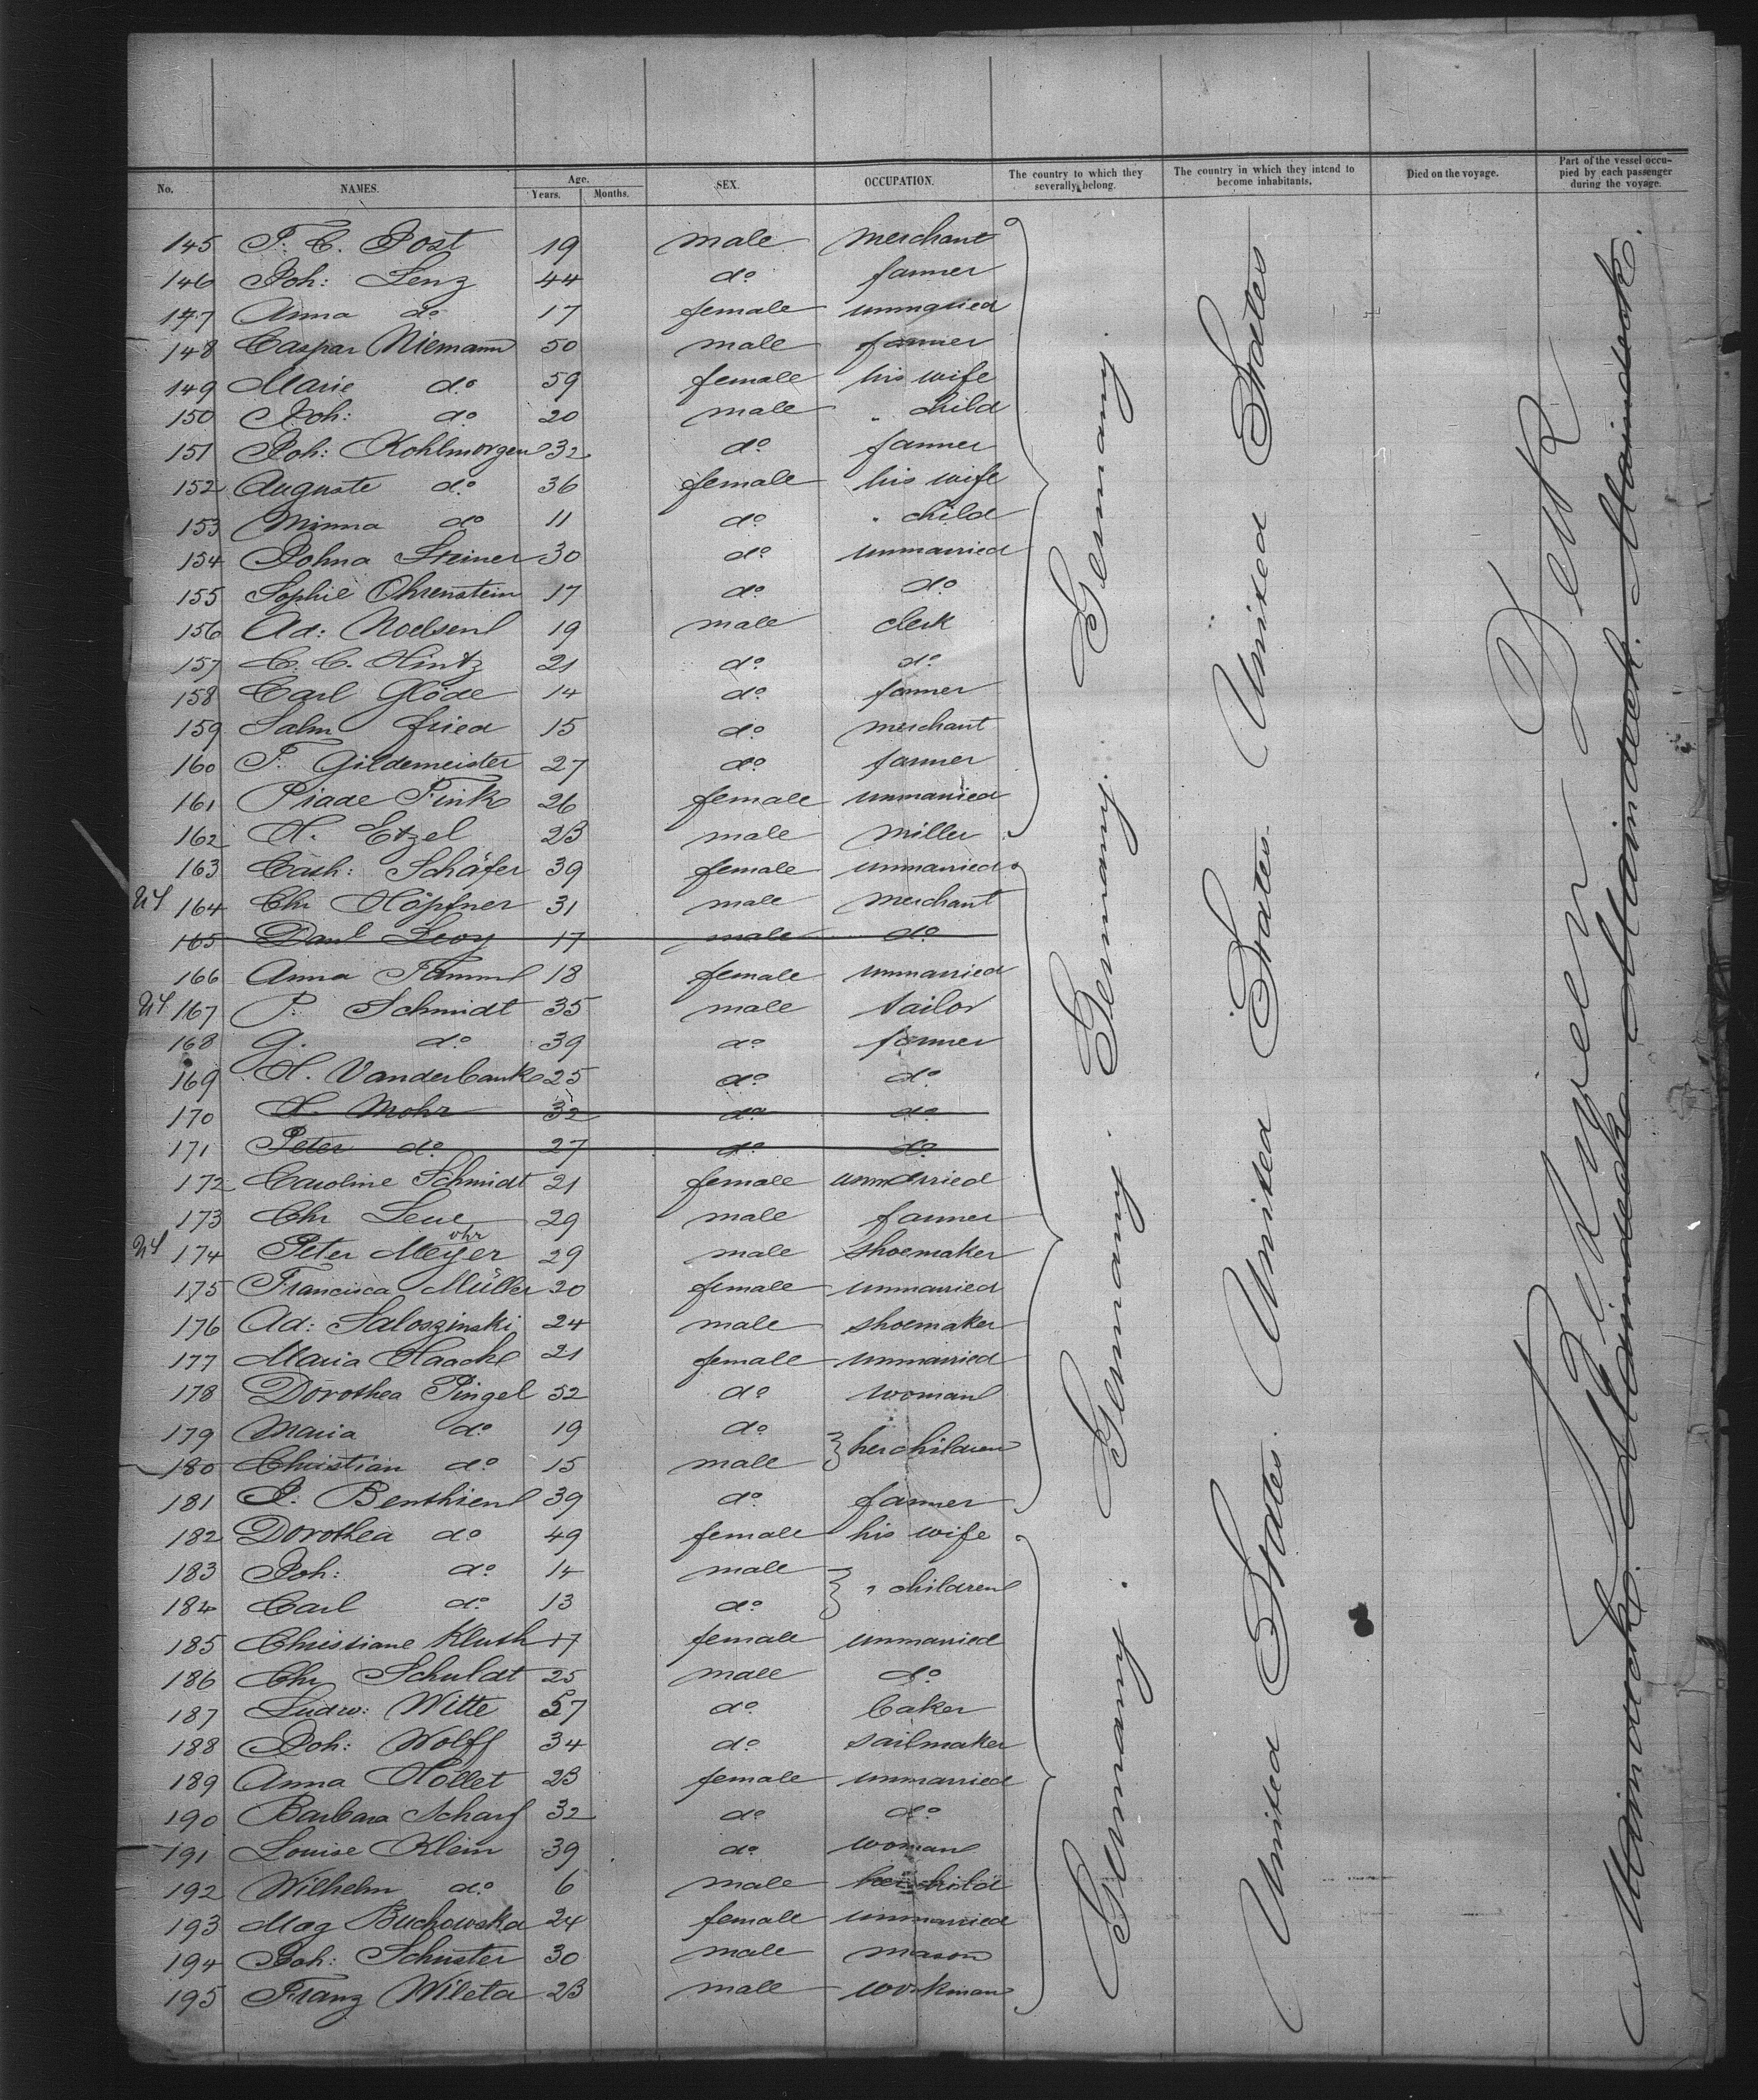 No. NAMES. Age. Years. Months. SEX. OCCUPATION. The country to which they severally belong. The country in which they intend to become inhabitants. Died on the voyage. Part of the vessel occupied by each passenger during the voyage.
145 F. C. Post 19 male merchant
146 Joh: Lenz 44 do farmer
147 Anna do 17 female unmarried
148 Caspar Niemann 50 male farmer
149 Marie do 59 female his wife
150 Joh: do 20 male " child
151 Joh: Kohlmorgen 32 do farmer
152 Auguste do 36 female his wife
153 Minna do 11 do " child
154 Johna Steiner 30 do unmarried
155 Sophie Ohrenstein 17 do do
156 Ad: Noelsen 19 male clerk
157 C. C. Hintz 21 do do
158 Carl Glöde 14 do farmer
159 Salm Fried 15 do merchant
160 F. Gildemeister 27 do farmer
161 Piade Fink 26 female unmarried
162 H. Etzel 23 male miller
163 Cath: Schäfer 39 female unmarried
164 Chr Höpfner 31 male merchant
165 Paul Levy 17 male do
166 Anna Tamm 18 female unmarried
167 P. Schmidt 35 male tailor
168 G. do 39 do farmer
169 H. Vanderbank 25 do do
170 H. Mohr 32 do do
171 Peter do 27 do do
172 Caroline Schmidt 21 female unmarried
173 Chr Leue 29 male farmer
174 Peter Meyer ohr 29 male shoemaker
175 Francisca Müller 20 female unmarried
176 Ad: Saloszinski 24 male shoemaker
177 Maria Haack 21 female unmarried
178 Dorothea Pingel 52 do woman
179 Maria do 19 do her children
180 Christian do 15 male
181 J. Benthien 39 do farmer
182 Dorothea do 49 female his wife
183 Joh: do 14 male " children
184 Carl do 13 do
185 Christiane Kluth 17 female unmarried
186 Chr Schuldt 25 male do
187 Ludw: Witte 57 do baker
188 Joh: Wolff 34 do sailmaker
189 Anna Höllet 23 female unmarried
190 Barbara Scharf 32 do do
191 Louise Klein 39 do woman
192 Wilhelm do 6 male her child
193 Mag Buchowska 24 female unmarried
194 Joh: Schuster 30 male mason
195 Franz Wileta 23 male workman
Germany. Germany. Germany. Germany.
United States. United States. United States
Zwischen Deck
Maindeck. Maindeck Maindeck. Maindeck.